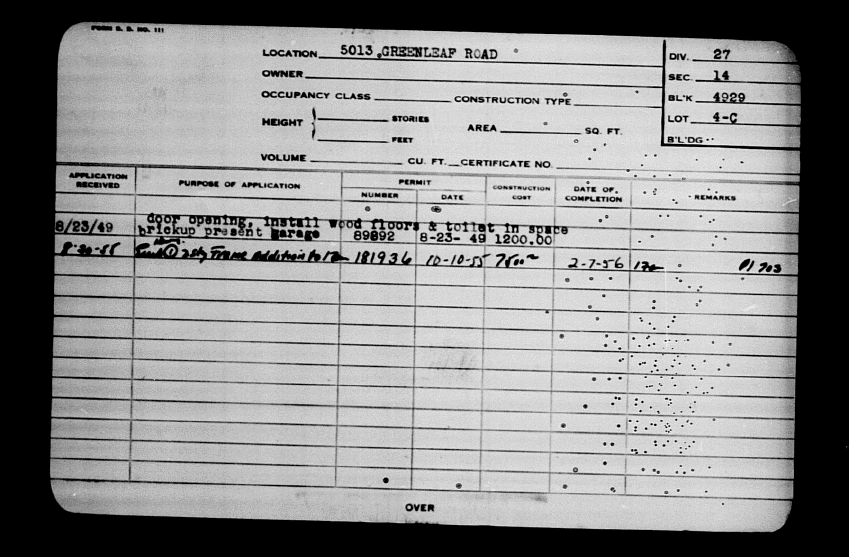 FORM S. D. NO. 111
LOCATION 5013 GREENLEAF ROAD
DIV. 27
OWNER
SEC. 14
OCCUPANCY CLASS CONSTRUCTION TYPE
BL'K 4929
HEIGHT STORIES
FEET
AREA SQ. FT.
LOT 4-C
B'L'DG
VOLUME CU. FT. CERTIFICATE NO.
APPLICATION RECEIVED PURPOSE OF APPLICATION PERMIT NUMBER DATE CONSTRUCTION COST DATE OF COMPLETION REMARKS
door opening, install wood floors & toilet in space
8/23/49 brickup present garage 89892 8-23-49 1200.00
8-30-55 2 sty Frame Addition to 181936 10-10-55 2-7-56
OVER